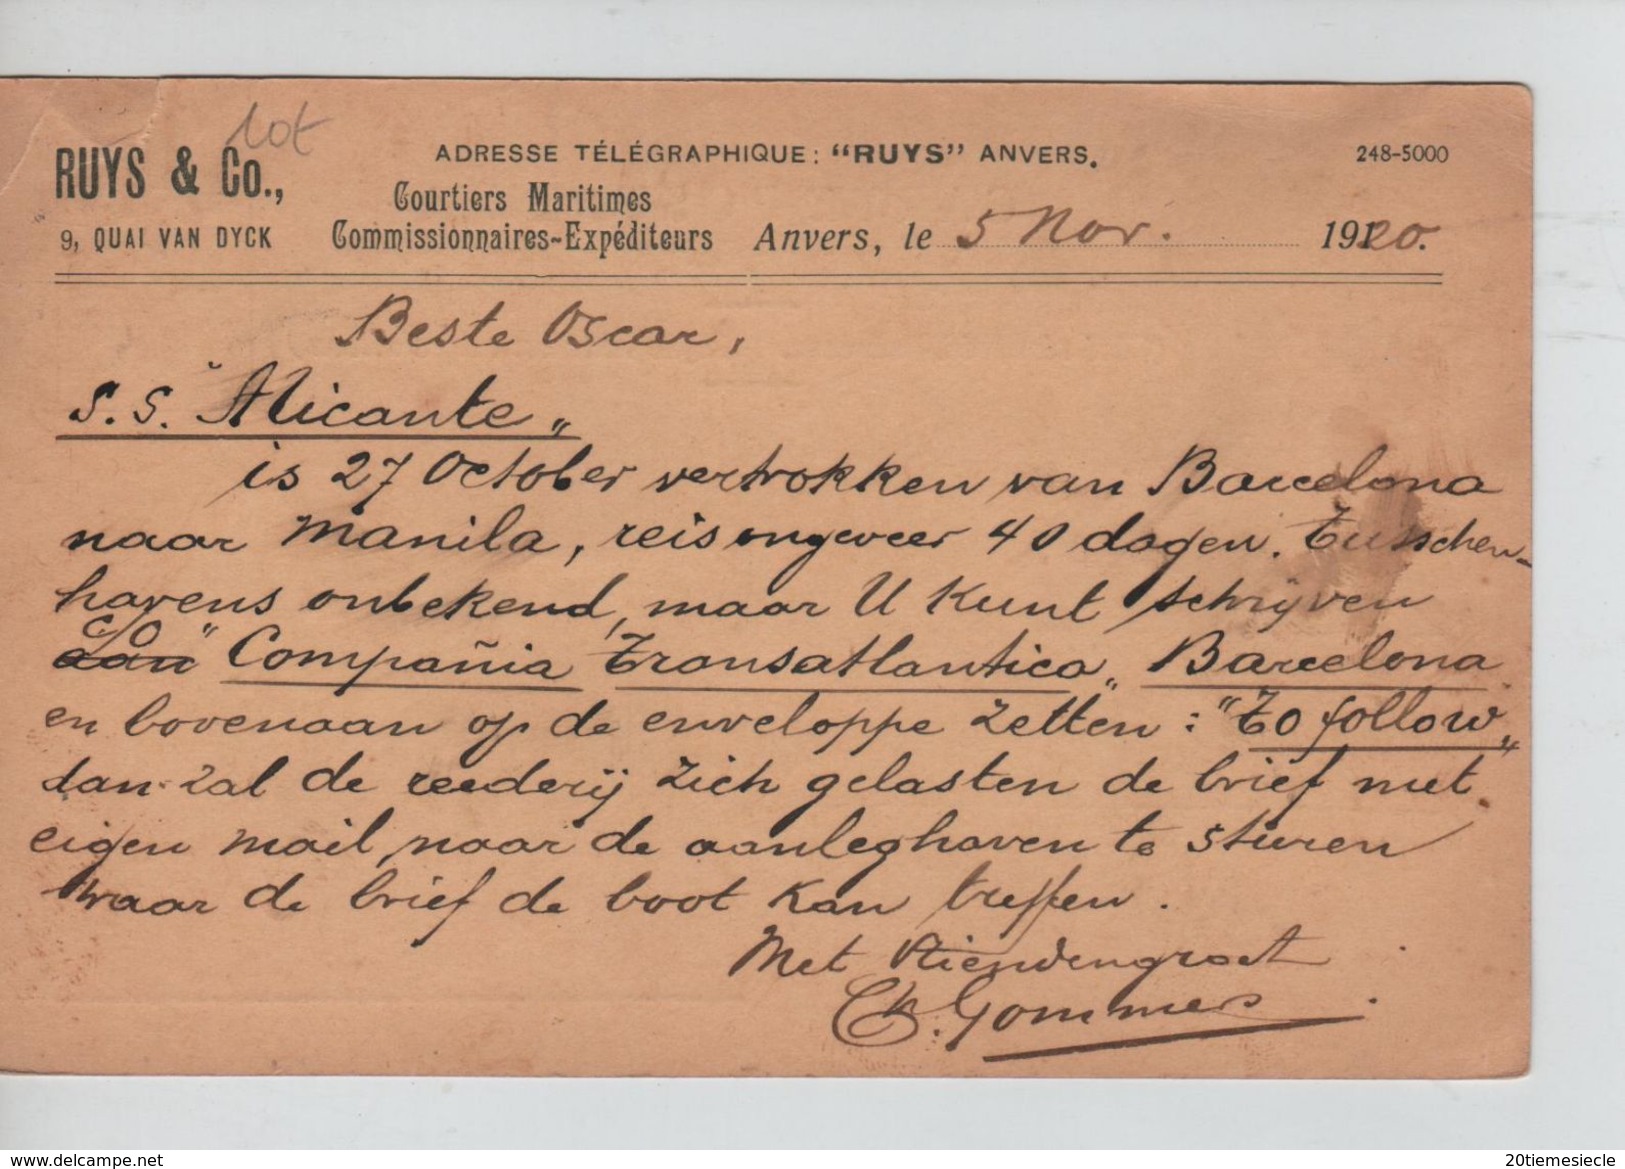 lot
RUYS & Co.,
9, QUAI VAN DYCK
ADRESSE TÉLÉGRAPHIQUE: "RUYS" ANVERS.
248-5000
Courtiers Maritimes
Commissionnaires-Expéditeurs
Anvers, le 5 Nov. 1920.
Beste Oscar,
S.S. "Alicante"
is 27 October vertrokken van Barcelona
naar Manila, reis ongeveer 40 dagen. Tusschen-
havens onbekend, maar U kunt schrijven
c/o
aan "Compañia Transatlantica" Barcelona
en bovenaan op de enveloppe zetten: "To follow"
dan zal de reederij zich gelasten de brief met
eigen mail, naar de aanleghaven te sturen
waar de brief de boot kan treffen.
Met vriendengroet
Ch. Gommers
Delcampe.net
20tiemesiecle